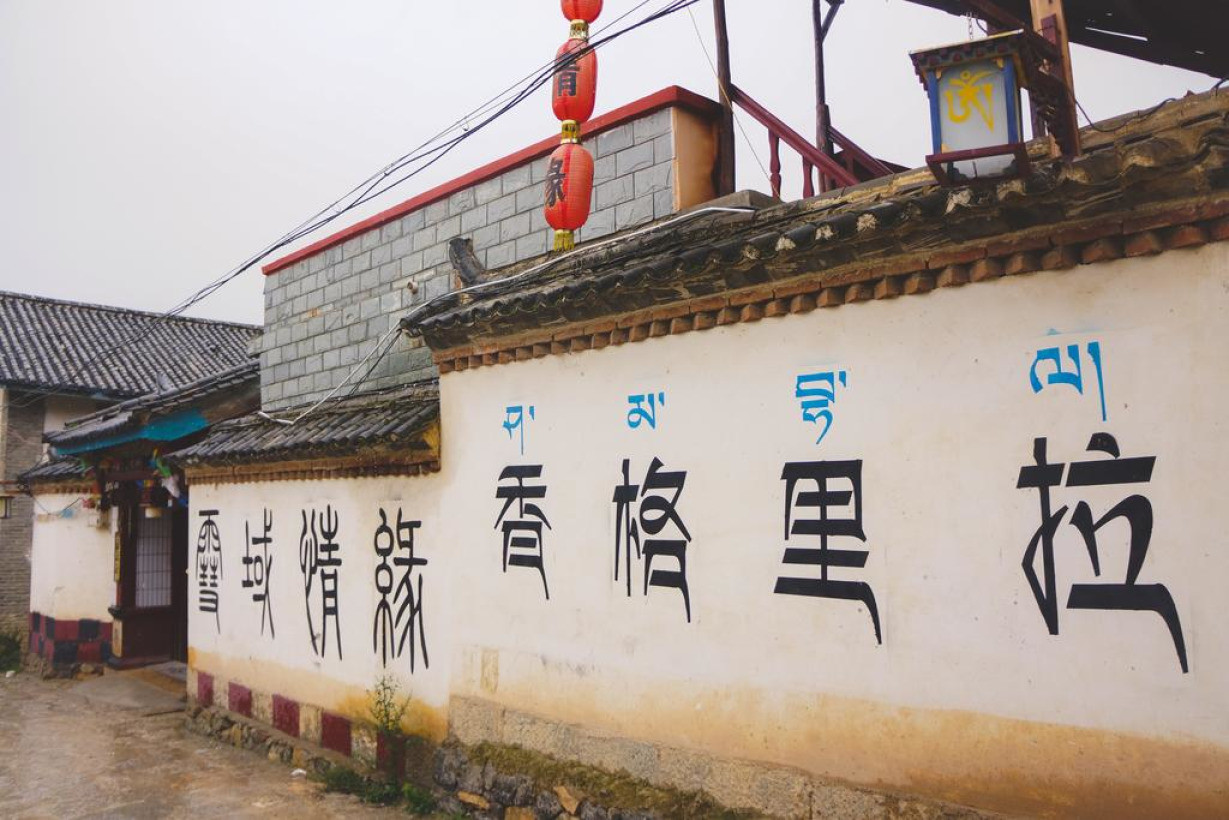 情
缘
ༀ
ཤ་ མ་ བྷ་ ལ།
雪域情緣
香格里拉